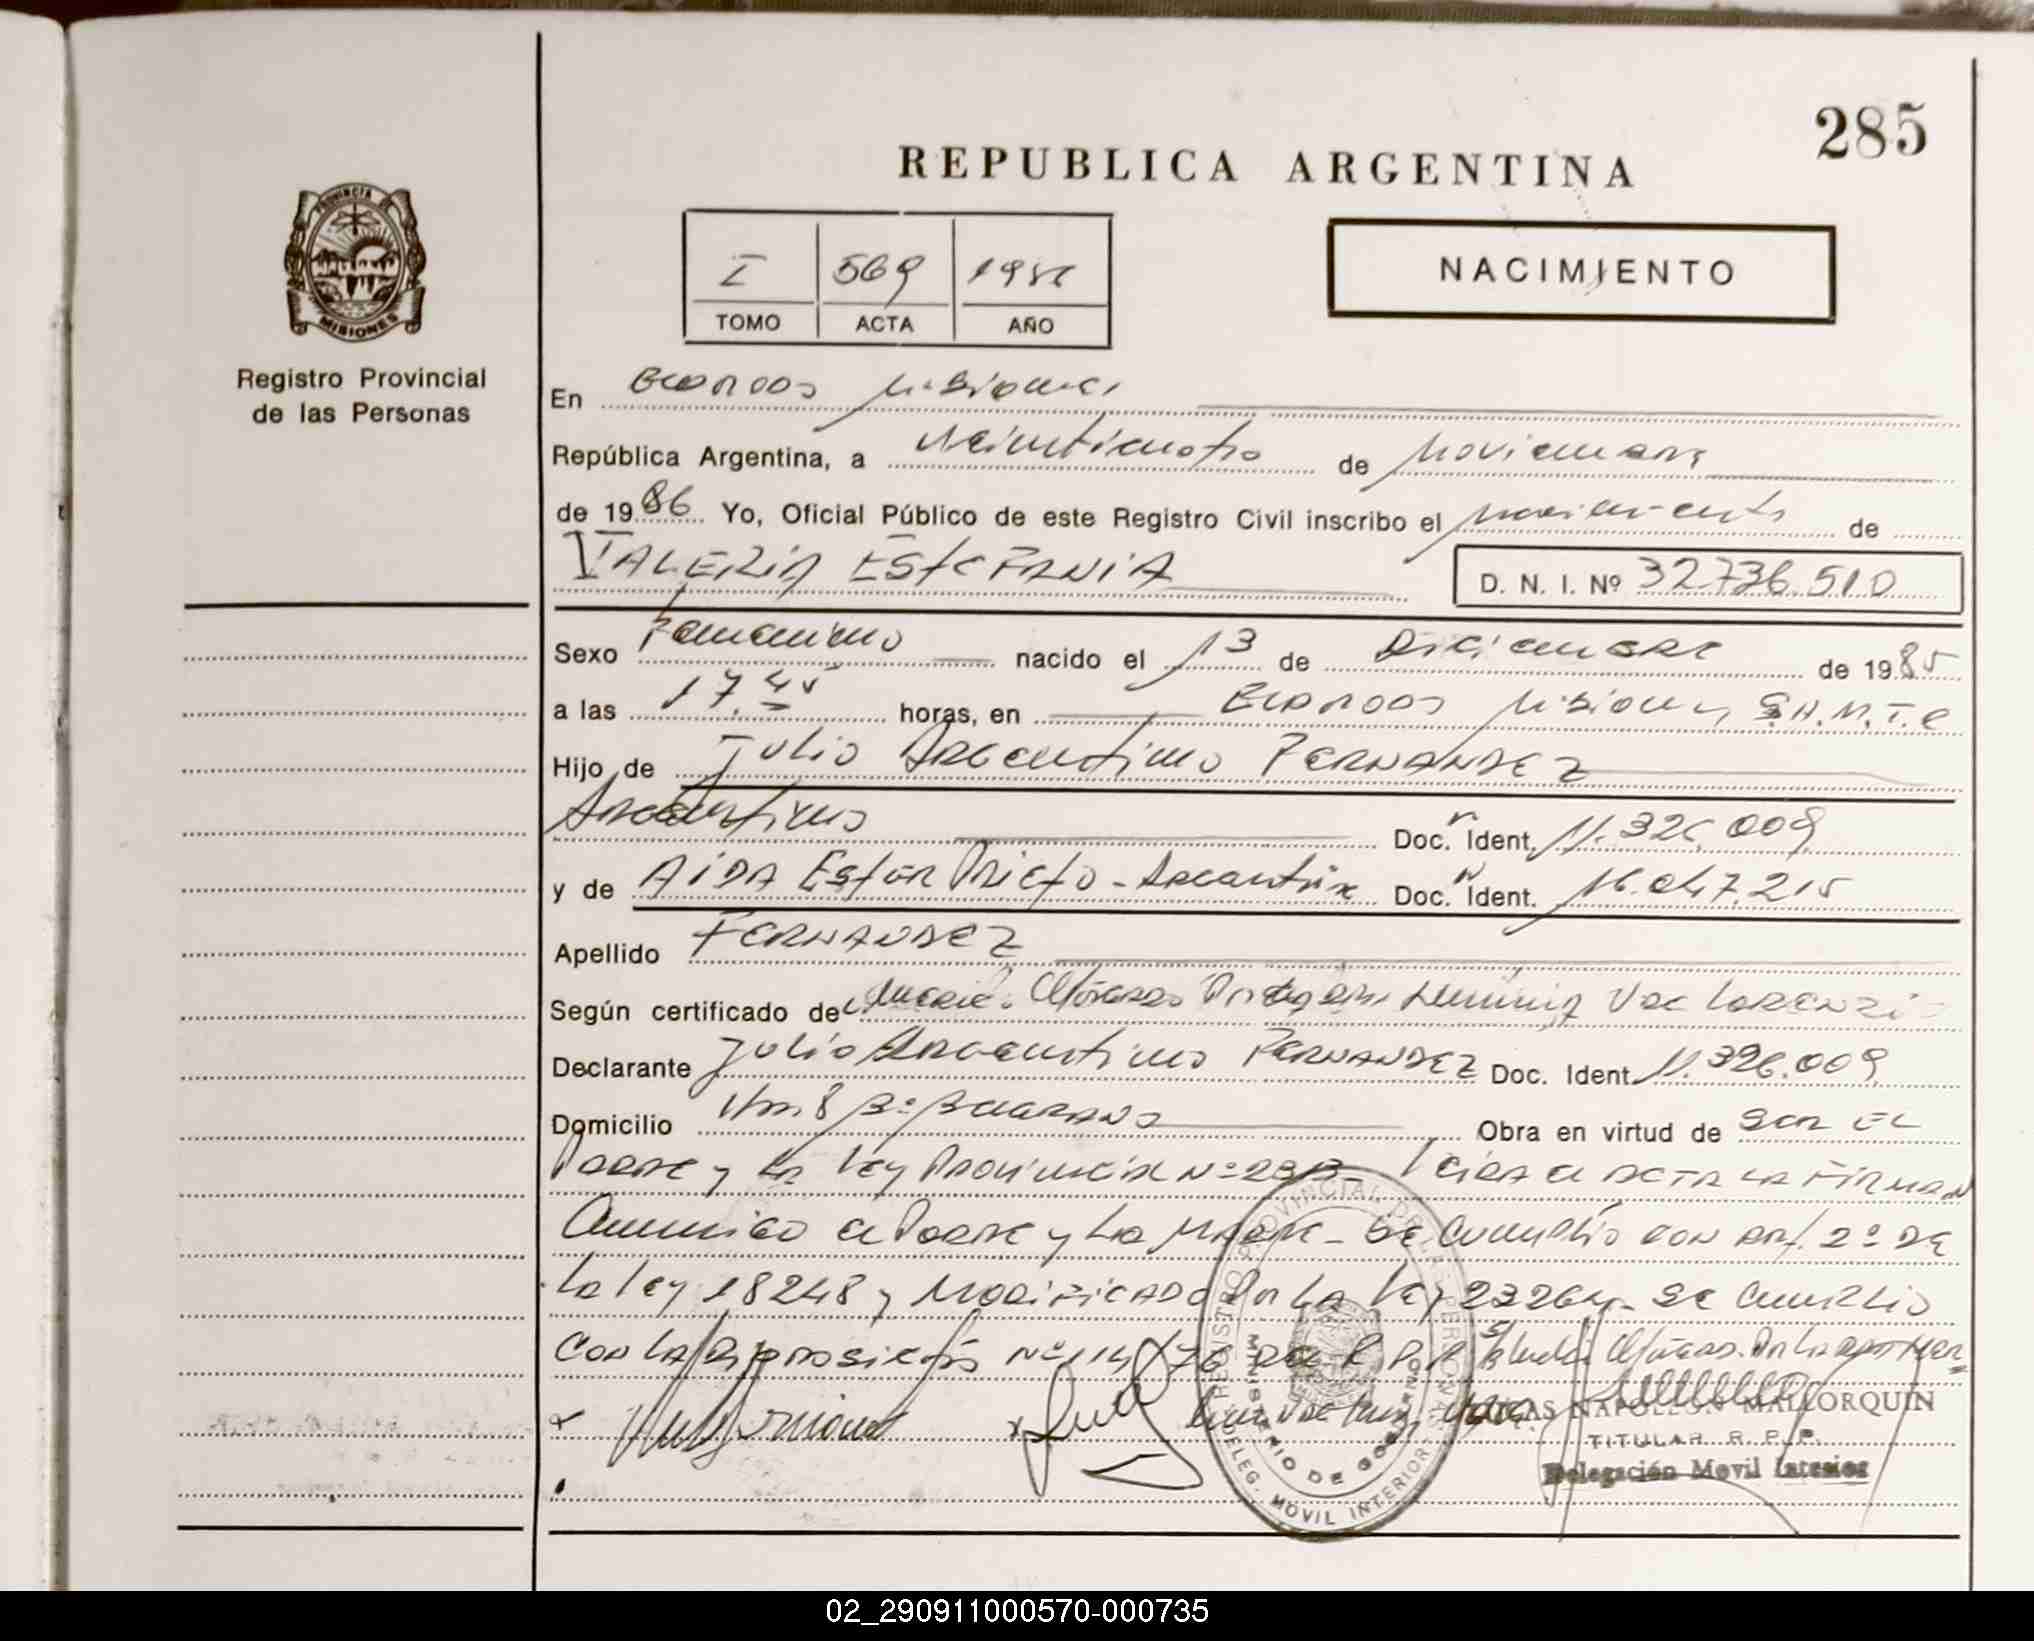 285
REPUBLICA ARGENTINA
PROVINCIA DE
MISIONES
I 569 1986
TOMO ACTA AÑO
NACIMIENTO
Registro Provincial
de las Personas
En ELDORADO Misiones
República Argentina, a Veinticuatro de Noviembre
de 1986 Yo, Oficial Público de este Registro Civil inscribo el nacimiento de
VALERIA ESTEFANIA D. N. I. Nº 32.736.510
Sexo Femenino nacido el 13 de Diciembre de 1985
a las 17.45 horas, en ELDORADO Misiones
Hijo de Julio Argentino FERNANDEZ
Argentino Doc. Ident. 11.326.009
y de AIDA ESTER Prieto - Argentina Doc. Ident. 16.047.215
Apellido FERNANDEZ
Según certificado de
Declarante Julio Argentino FERNANDEZ Doc. Ident. 11.326.009
Domicilio Km 8 Bº BELGRANO Obra en virtud de SER EL
PADRE y LA Ley Provincial Nº LEIDA EL ACTA LA FIRMAN
Conmigo el PADRE y LA MADRE - Se Cumplio CON Art. 2º DE
La Ley 18248 y MODIFICADO Por LA Ley 23264 - Se Cumplio
CON LA Disposición Nº 114/76 del R.P.P.
LUCAS NAPOLEON MALLORQUIN
TITULAR R. P. P.
Delegación Movil Interior
REGISTRO PROVINCIAL DE LAS PERSONAS
MINISTERIO DE GOBIERNO
DELEG. MOVIL INTERIOR
02_290911000570-000735